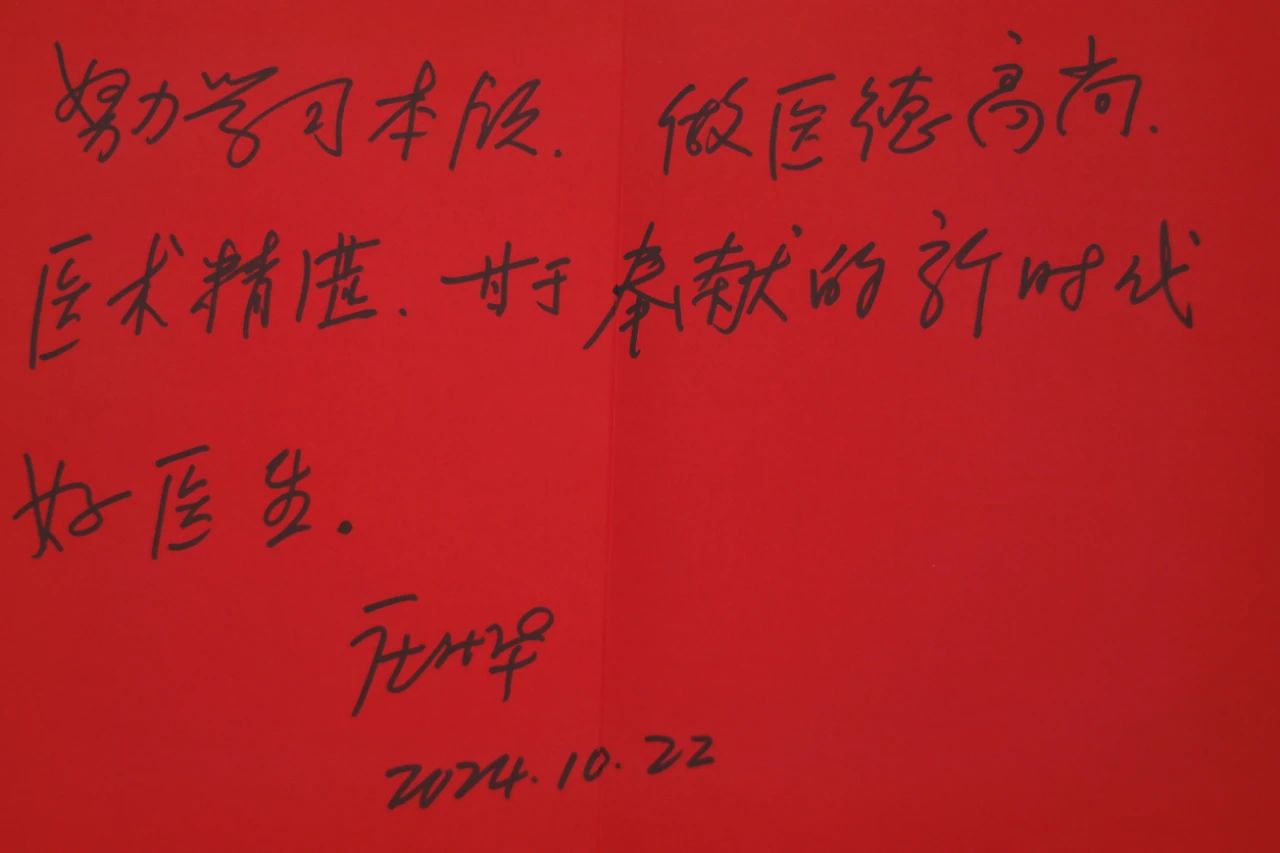 努力学习本领. 做医德高尚.
医术精湛. 甘于奉献的新时代
好医生.
2024.10.22